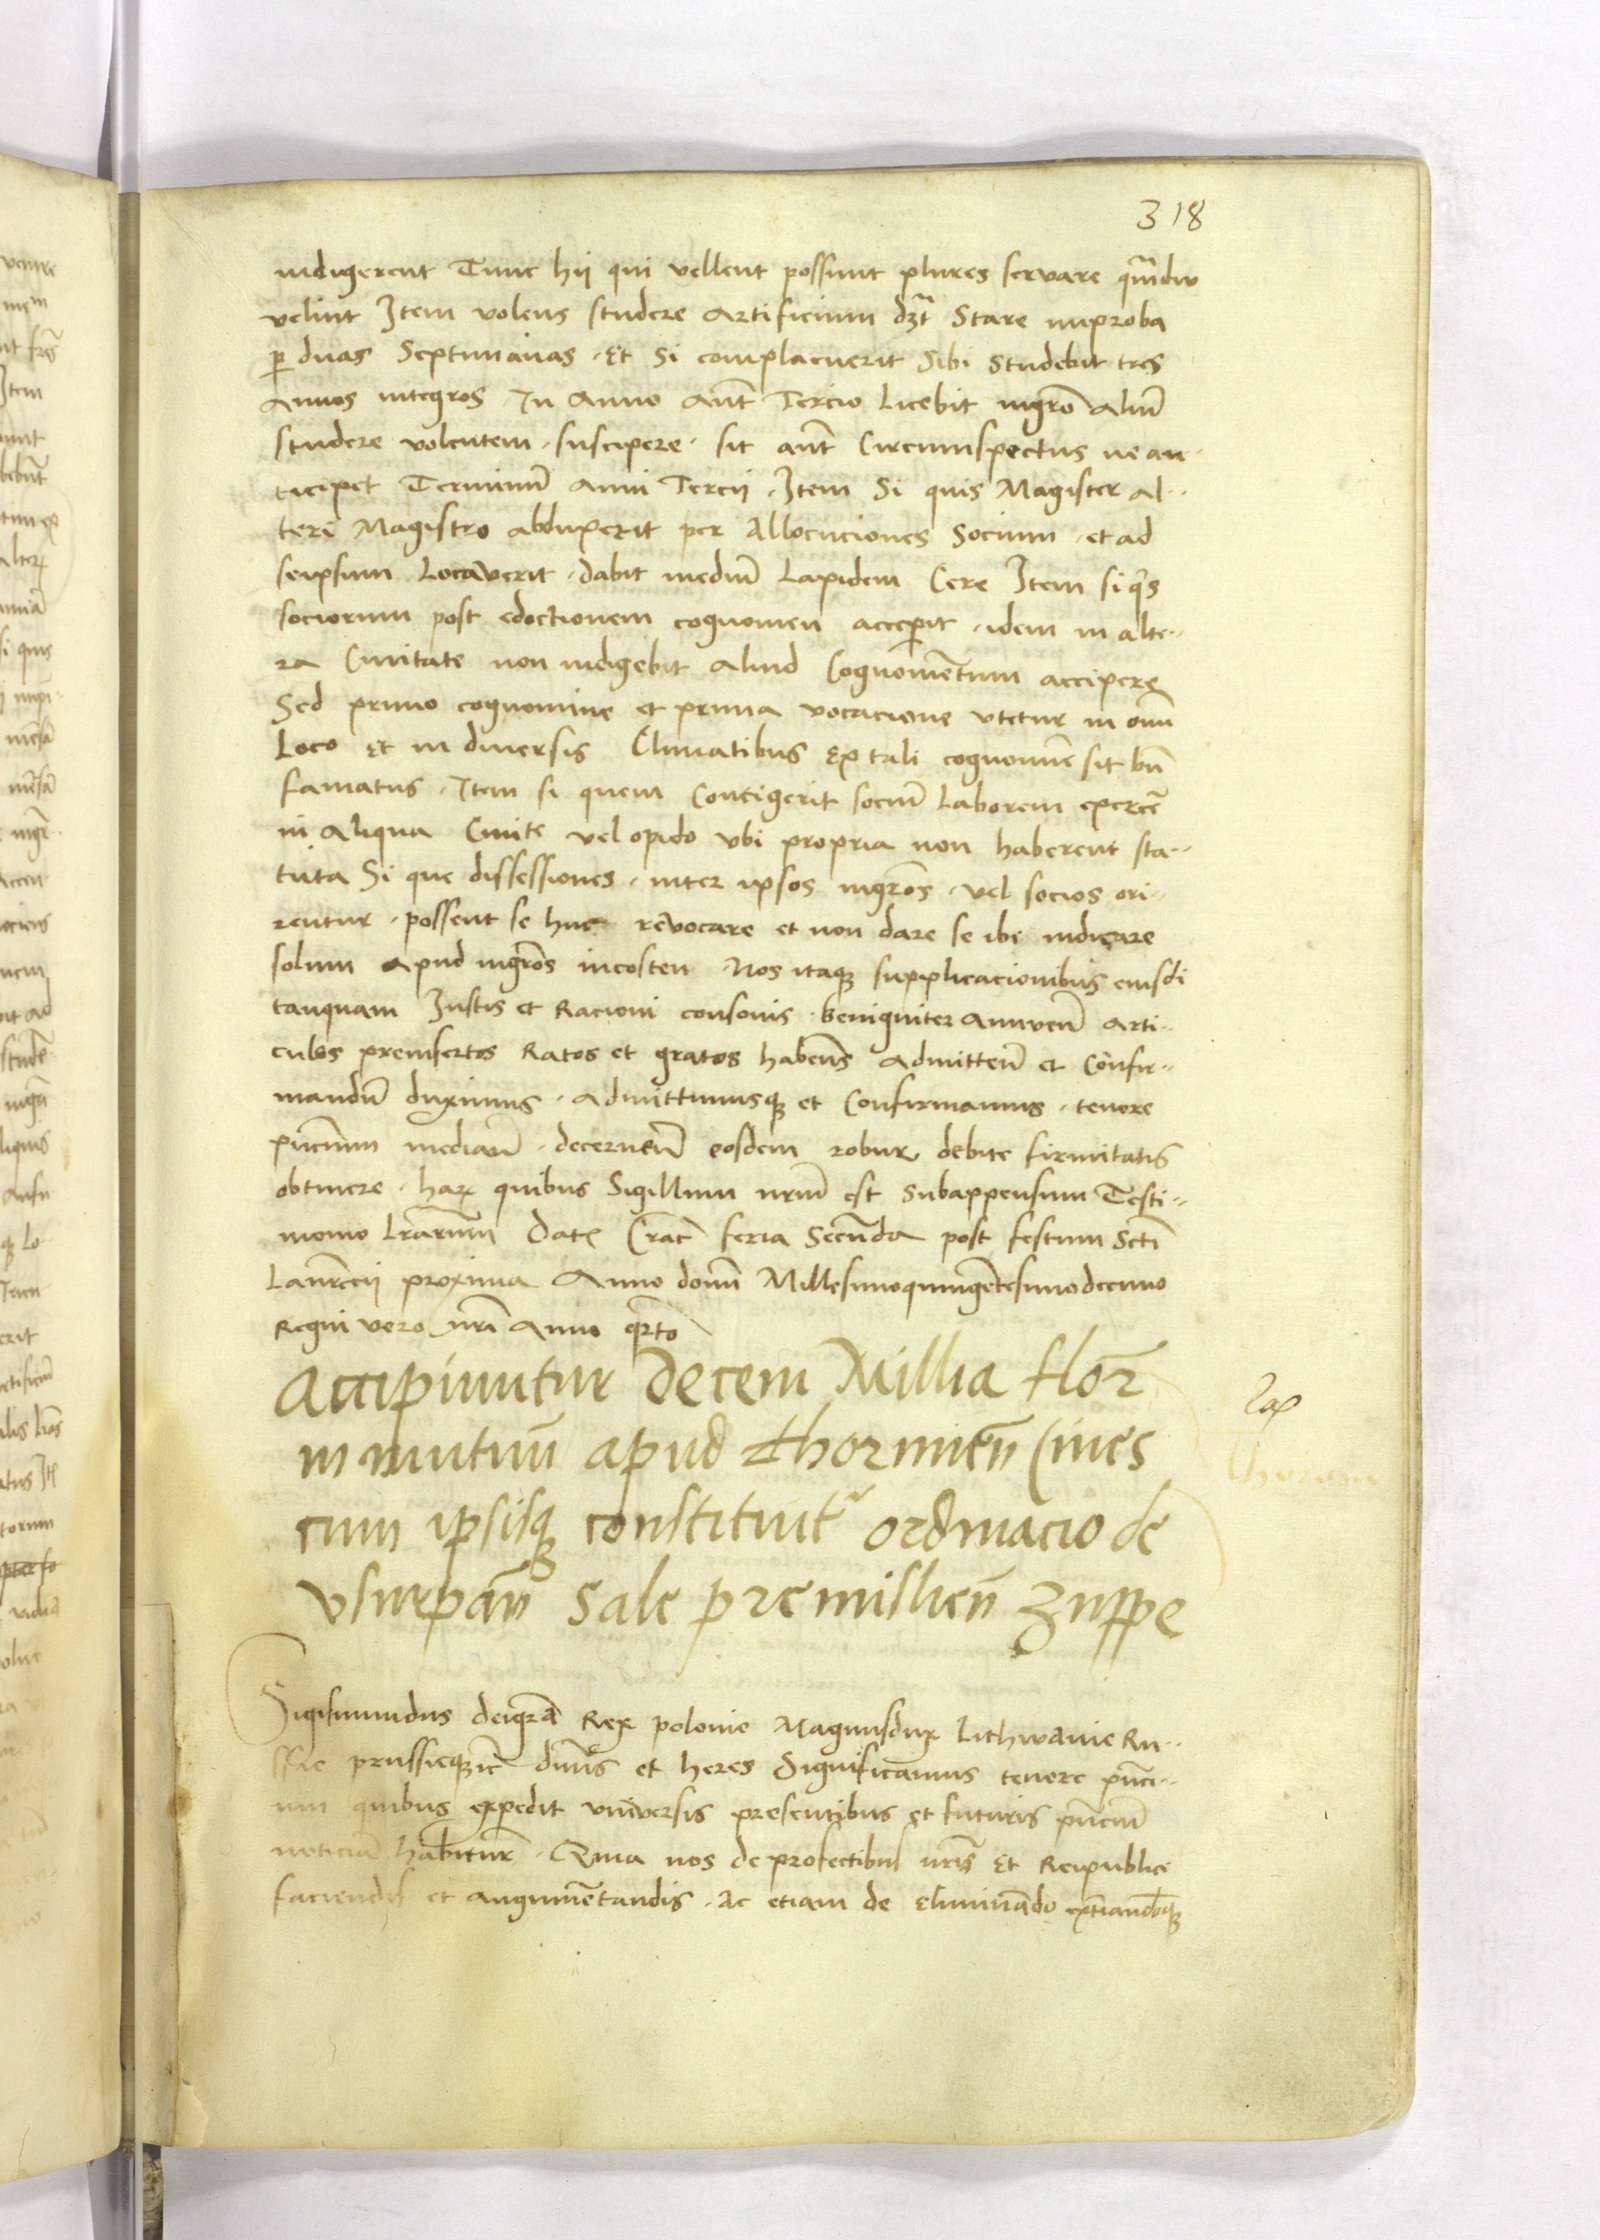 318
indigerent Tunc hij qui vellent possunt plures servare qmdiu
velint Item volens studere Artificium dzt Stare in proba
p duas Septimanas . Et Si complacuerit Sibi Studebit tres
Annos integros . In Anno Aut Tercio Licebit mgro Aliu
studere volentem . suscipere . sit aut Circumspectus ne an-
ticipet Terminu Anni Tercii . Item Si quis Magister al-
teri Magistro abduxerit per Allocuciones Socium . et ad
seipsum Locaverit . dabit mediu Lapidem Cere Item si qs
sociorum post edoctionem cognomen acceperit . idem in alte-
ra Civitate non indigebit Aliud Cognomentum accipere
Sed primo cognomine et prima vocacione vtetur in omi
Loco Et in diversis Climatibus Ex tali cognomine sit bn
famatus . Item si quem Contigerit sociu Laborem exercere
in Aliqua Civite vel opido vbi propria non haberent sta-
tuta Si que dissessiones . inter ipsos mgros . vel socios ori-
rentur . possent se huc revocare et non dare se ibi iudicare
solum Apud mgros in costen . Nos itaq supplicacionibus eiusdi
tanquam Iustis et Racioni consonis . benigniter Annuen Arti-
culos preinsertos Ratos et gratos habens Admitten et Confir-
mandu duximus . Admittimusq et Confirmamus . tenore
pncium median . decernen eosdem robur debite firmitatis
obtinere . har quibus Sigillum nrm est Subappensum Testi-
monio Lrarum Dat Crac feria Secunda post festum Scti
Laurencii proxima Anno domi Millesimoquingentesimodecimo
Regni vero nri Anno qrto
Accipiuntur decem Millia flor
in mutuu apud Thornien Cives
cum ipsisq constituit ordinacio de
vsurpan sale premislien Zuppe
Sigismundus dei gra Rex polonie Magnusdux Lithwanie Ru-
ssie prussieq zc dns et heres Significamus tenore pnci-
um quibus expedit vniversis presentibus et futuris pncium
noticia habitur . Quia nos de profectibus nris Et Reipublice
faciendis et augumentandis . Ac etiam de Eliminado